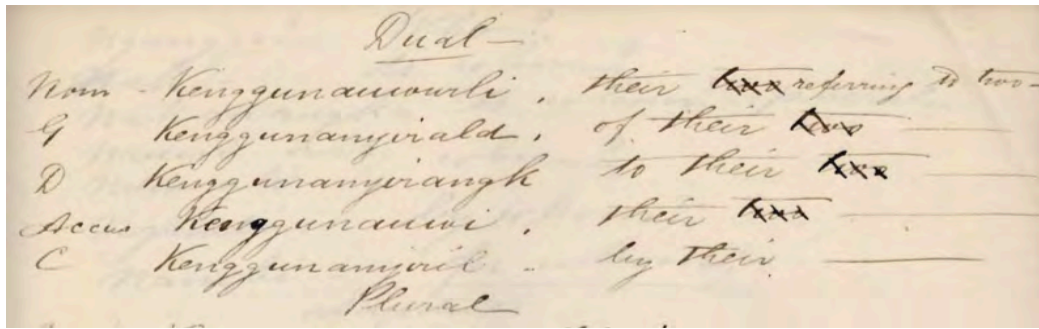 Dual —
Nom - Kenggunauwurli, their two referring to two -
G Kenggunanyirald, of their two
D Kenggunanyirangk to their two
Accus Kenggunauwi, their two
C Kenggunanyiril .. by their
Plural